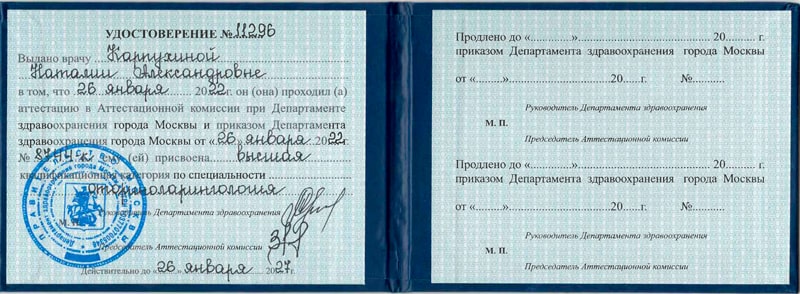 УДОСТОВЕРЕНИЕ № 11296
Выдано врачу Карпухиной
Наталии Александровне
в том, что 26 января 2022 г. он (она) проходил (а)
аттестацию в Аттестационной комиссии при Департаменте
здравоохранения города Москвы и приказом Департамента
здравоохранения города Москвы от «26 января 2022
№ ему (ей) присвоена высшая
квалификационная категория по специальности
оториноларингология
Руководитель Департамента здравоохранения
М. П.
Председатель Аттестационной комиссии
Действительно до «26 января 2027 г.
Продлено до «.........»............................ 20......г.
приказом Департамента здравоохранения города Москвы
от «.........»............................20......г. №...........
Руководитель Департамента здравоохранения
М. П.
Председатель Аттестационной комиссии
Продлено до «.........»............................ 20......г.
приказом Департамента здравоохранения города Москвы
от «.........»............................20......г. №...........
Руководитель Департамента здравоохранения
М. П.
Председатель Аттестационной комиссии